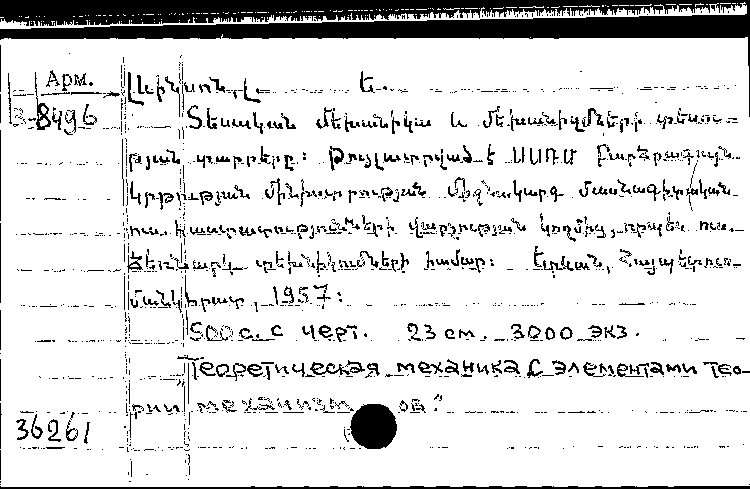 Арм. Լևինսոն, Լ. Ե.
3-8496
Տեսական մեխանիկա և մեխանիզմների տեսու-
թյան տարրերը: Թույլատրված է ՍՍՌՄ Բարձրագույն
կրթության մինիստրության միջնակարգ մասնագիտական
ուս. հաստատությունների վարչության կողմից, որպես ուս.
ձեռնարկ տեխնիկումների համար: Երևան, Հայպետուս-
մանկհրատ, 1957:
500 с. с черт. 23 см. 3000 экз.
"Теоретическая механика с элементами тео-
рии механизмов."
36261